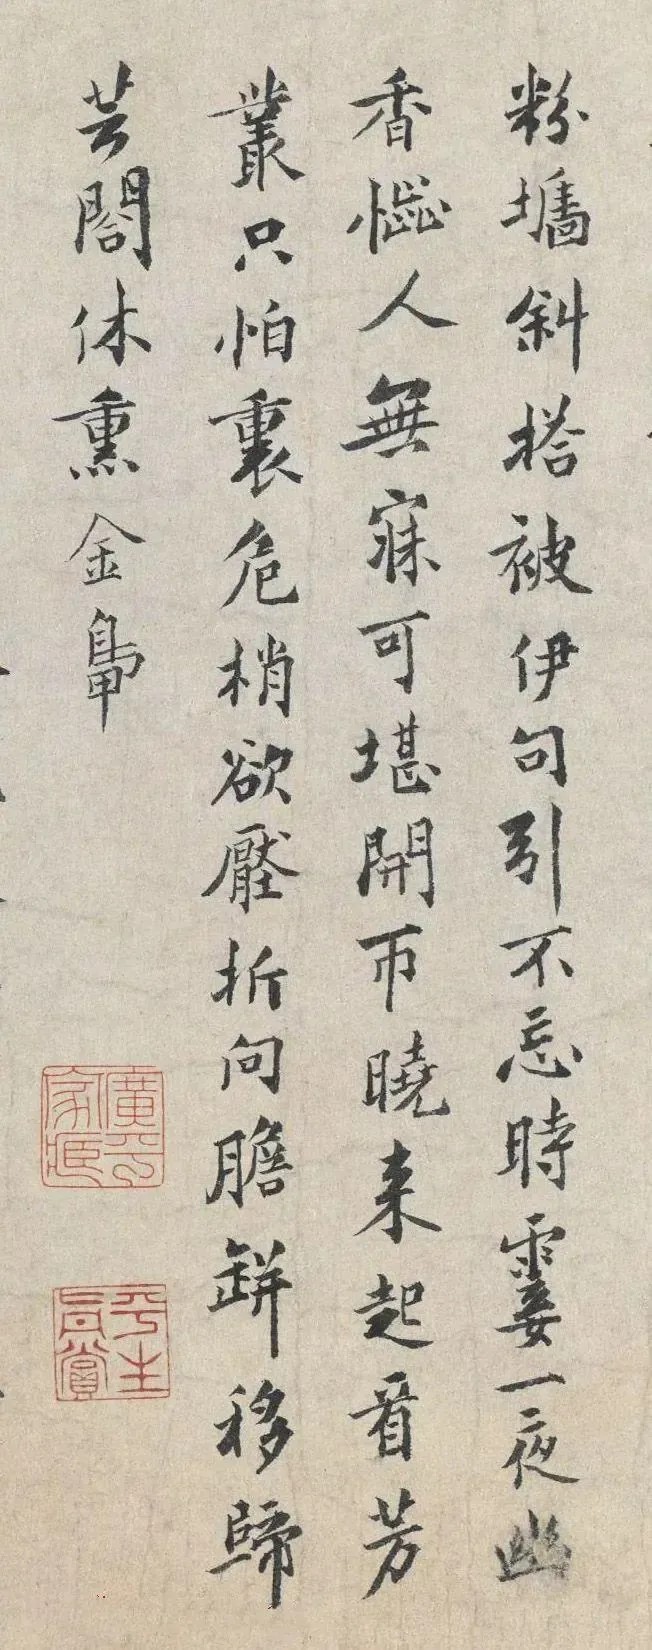 粉墻斜搭被伊勾引不忘時霎一夜幽
香惱人無寐可堪開帀曉来起看芳
叢只怕裏危梢欲壓折向膽缾移歸
芸閤休熏金鳧
廣平家藏
平生真賞